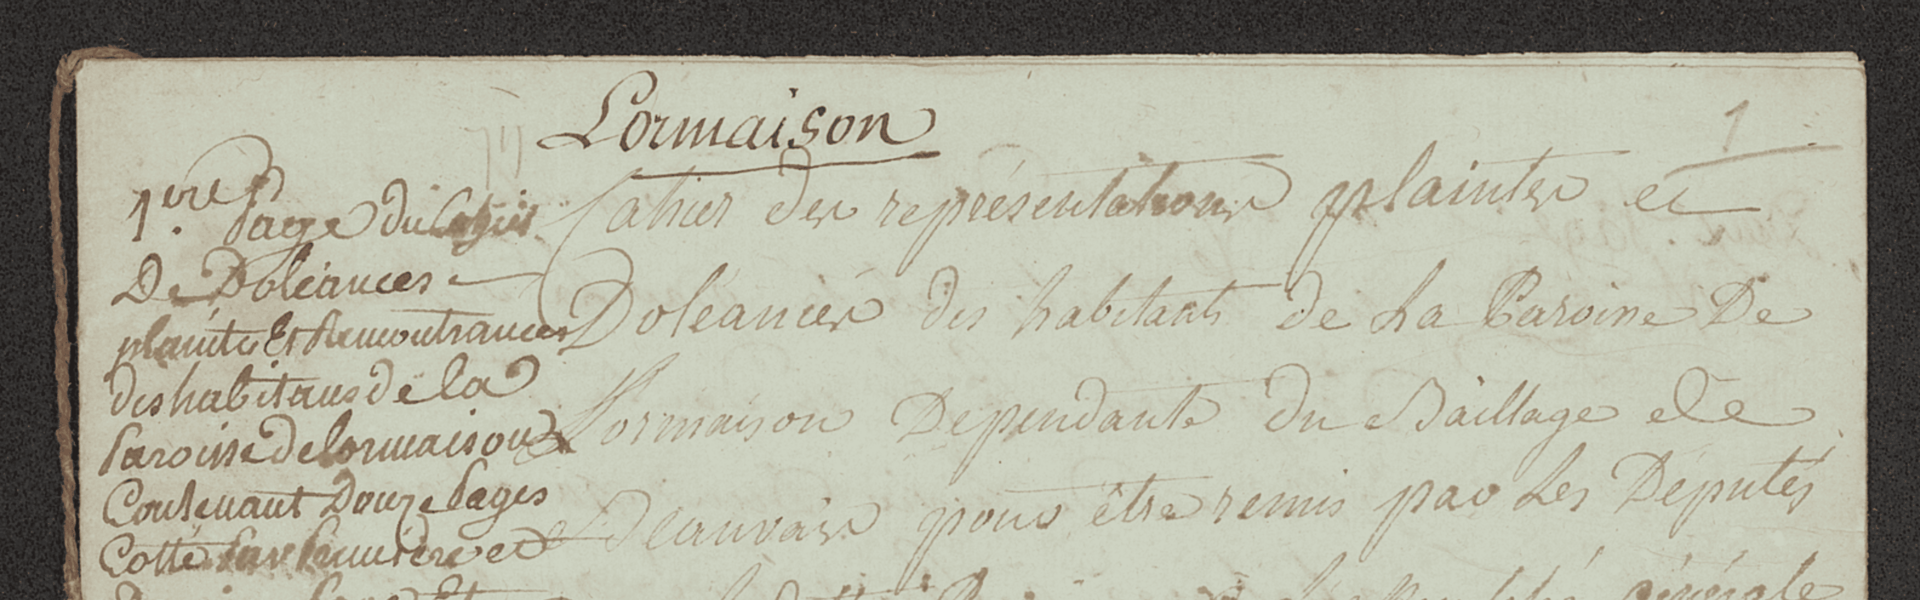 Lormaison
1
1ere Page du Cahier
De Doléances
plainte Et Remontrances
des habitans de la
Paroisse de lormaison
Contenant Douze Pages
Cotté Par Premiere et
Cahier des représentations plaintes et
Doléances des habitants de La Paroisse De
Lormaison Dependante du Baillage De
Beauvais pour être remis par Les Députés
générale